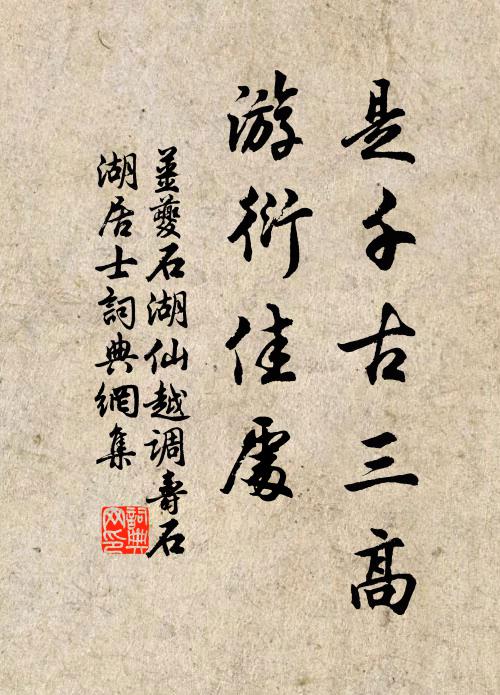 是千古三高
游衍佳處
姜夔石湖仙越調壽石
湖居士詞典網集
詞典网印